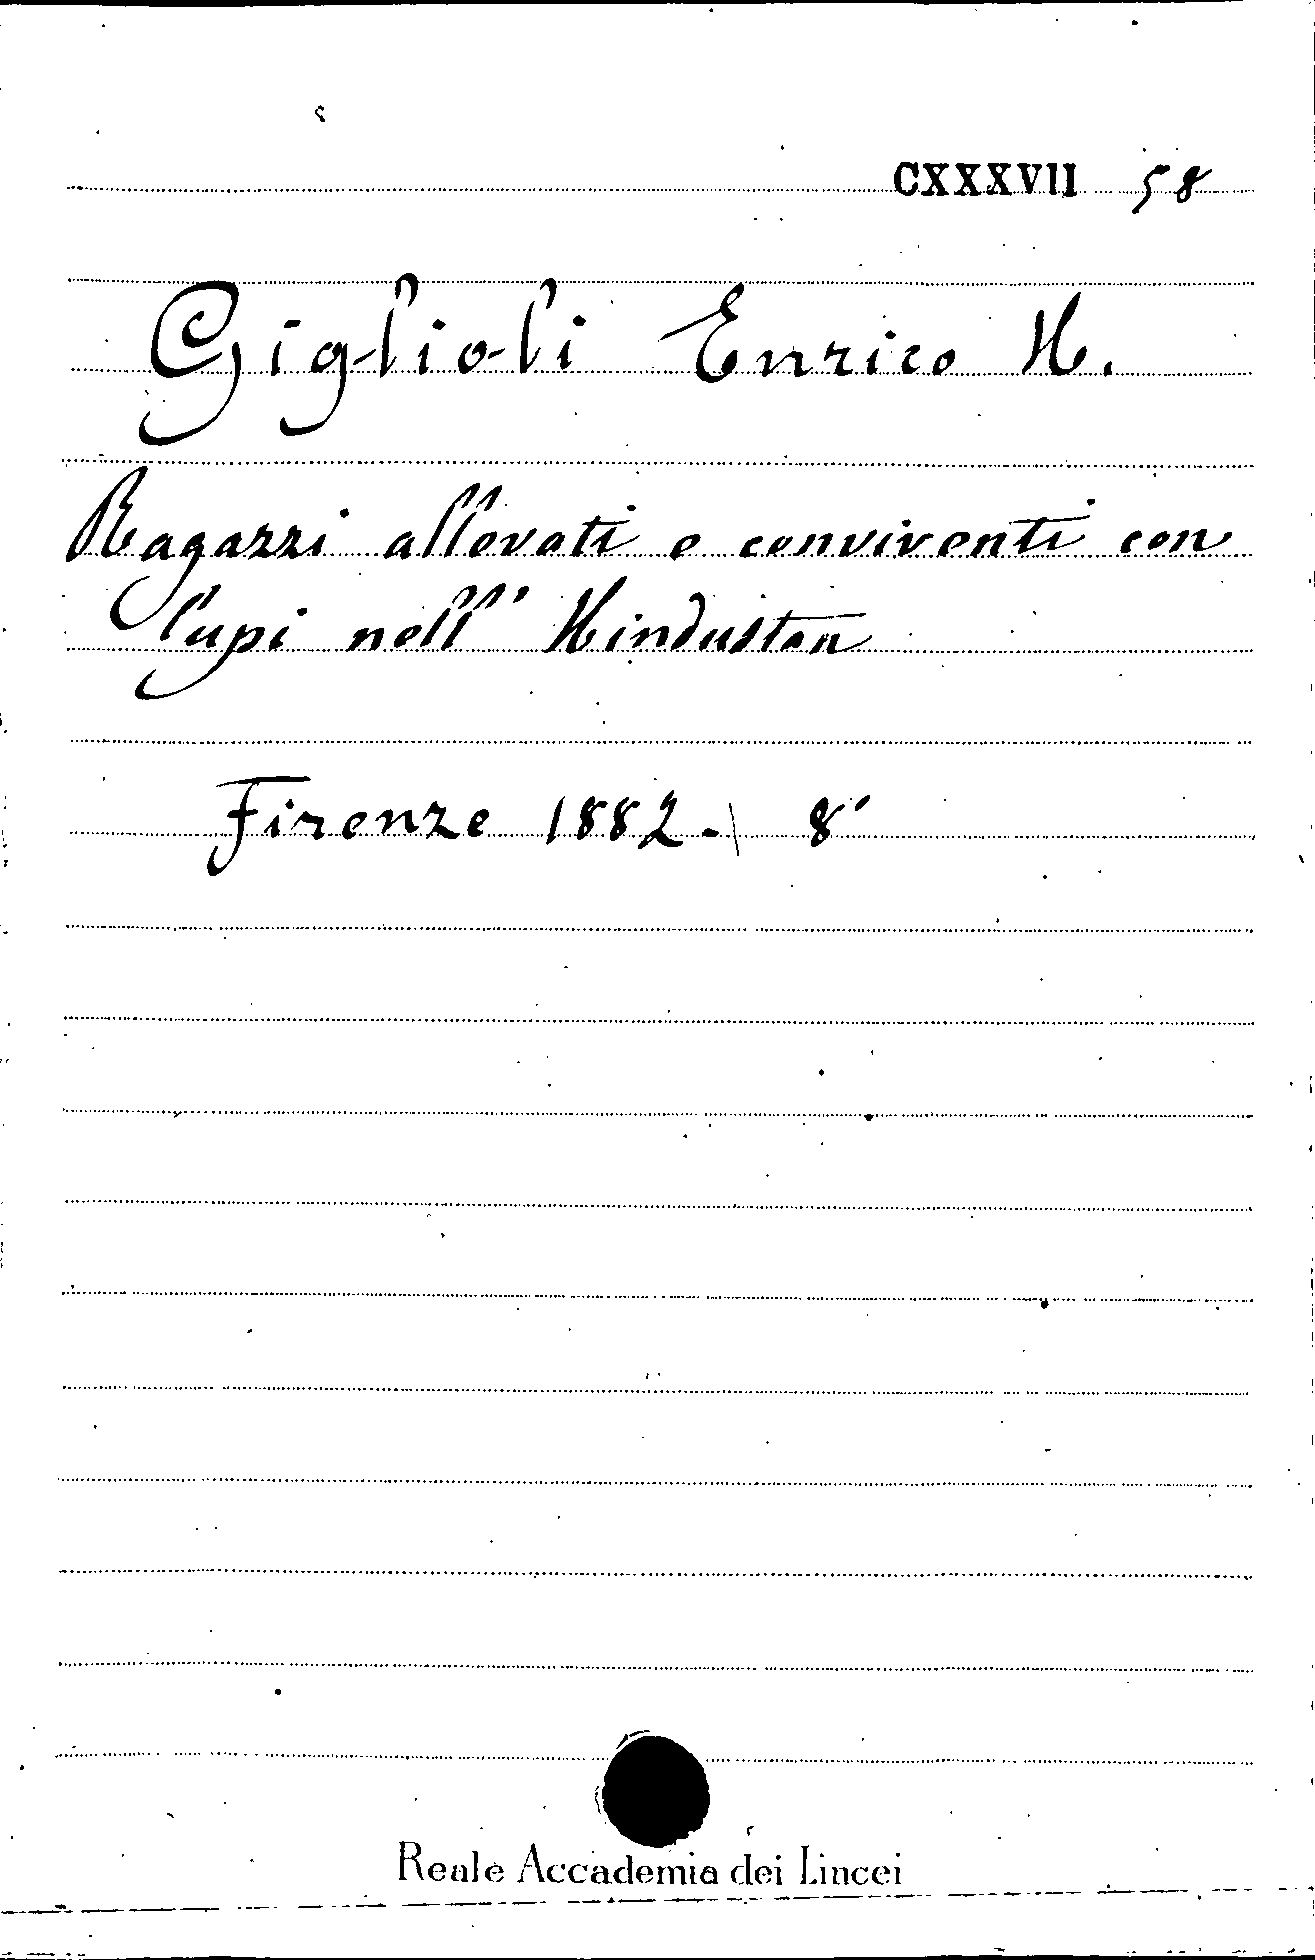 CXXXVII 58
Giglioli Enrico H.
Ragazzi allevati e conviventi con
lupi nell' Hindustan
Firenze 1882. 8°
Reale Accademia dei Lincei